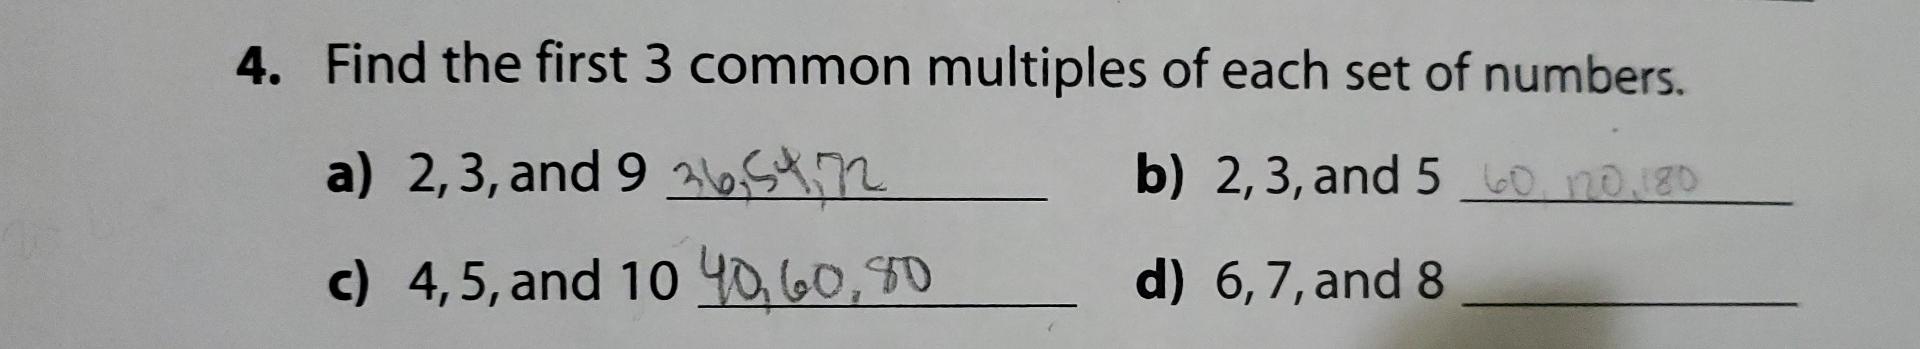 4. Find the first 3 common multiples of each set of numbers.
a) 2, 3, and 9 36,54,72
b) 2, 3, and 5 60, 120, 180
c) 4, 5, and 10 40, 60, 80
d) 6, 7, and 8